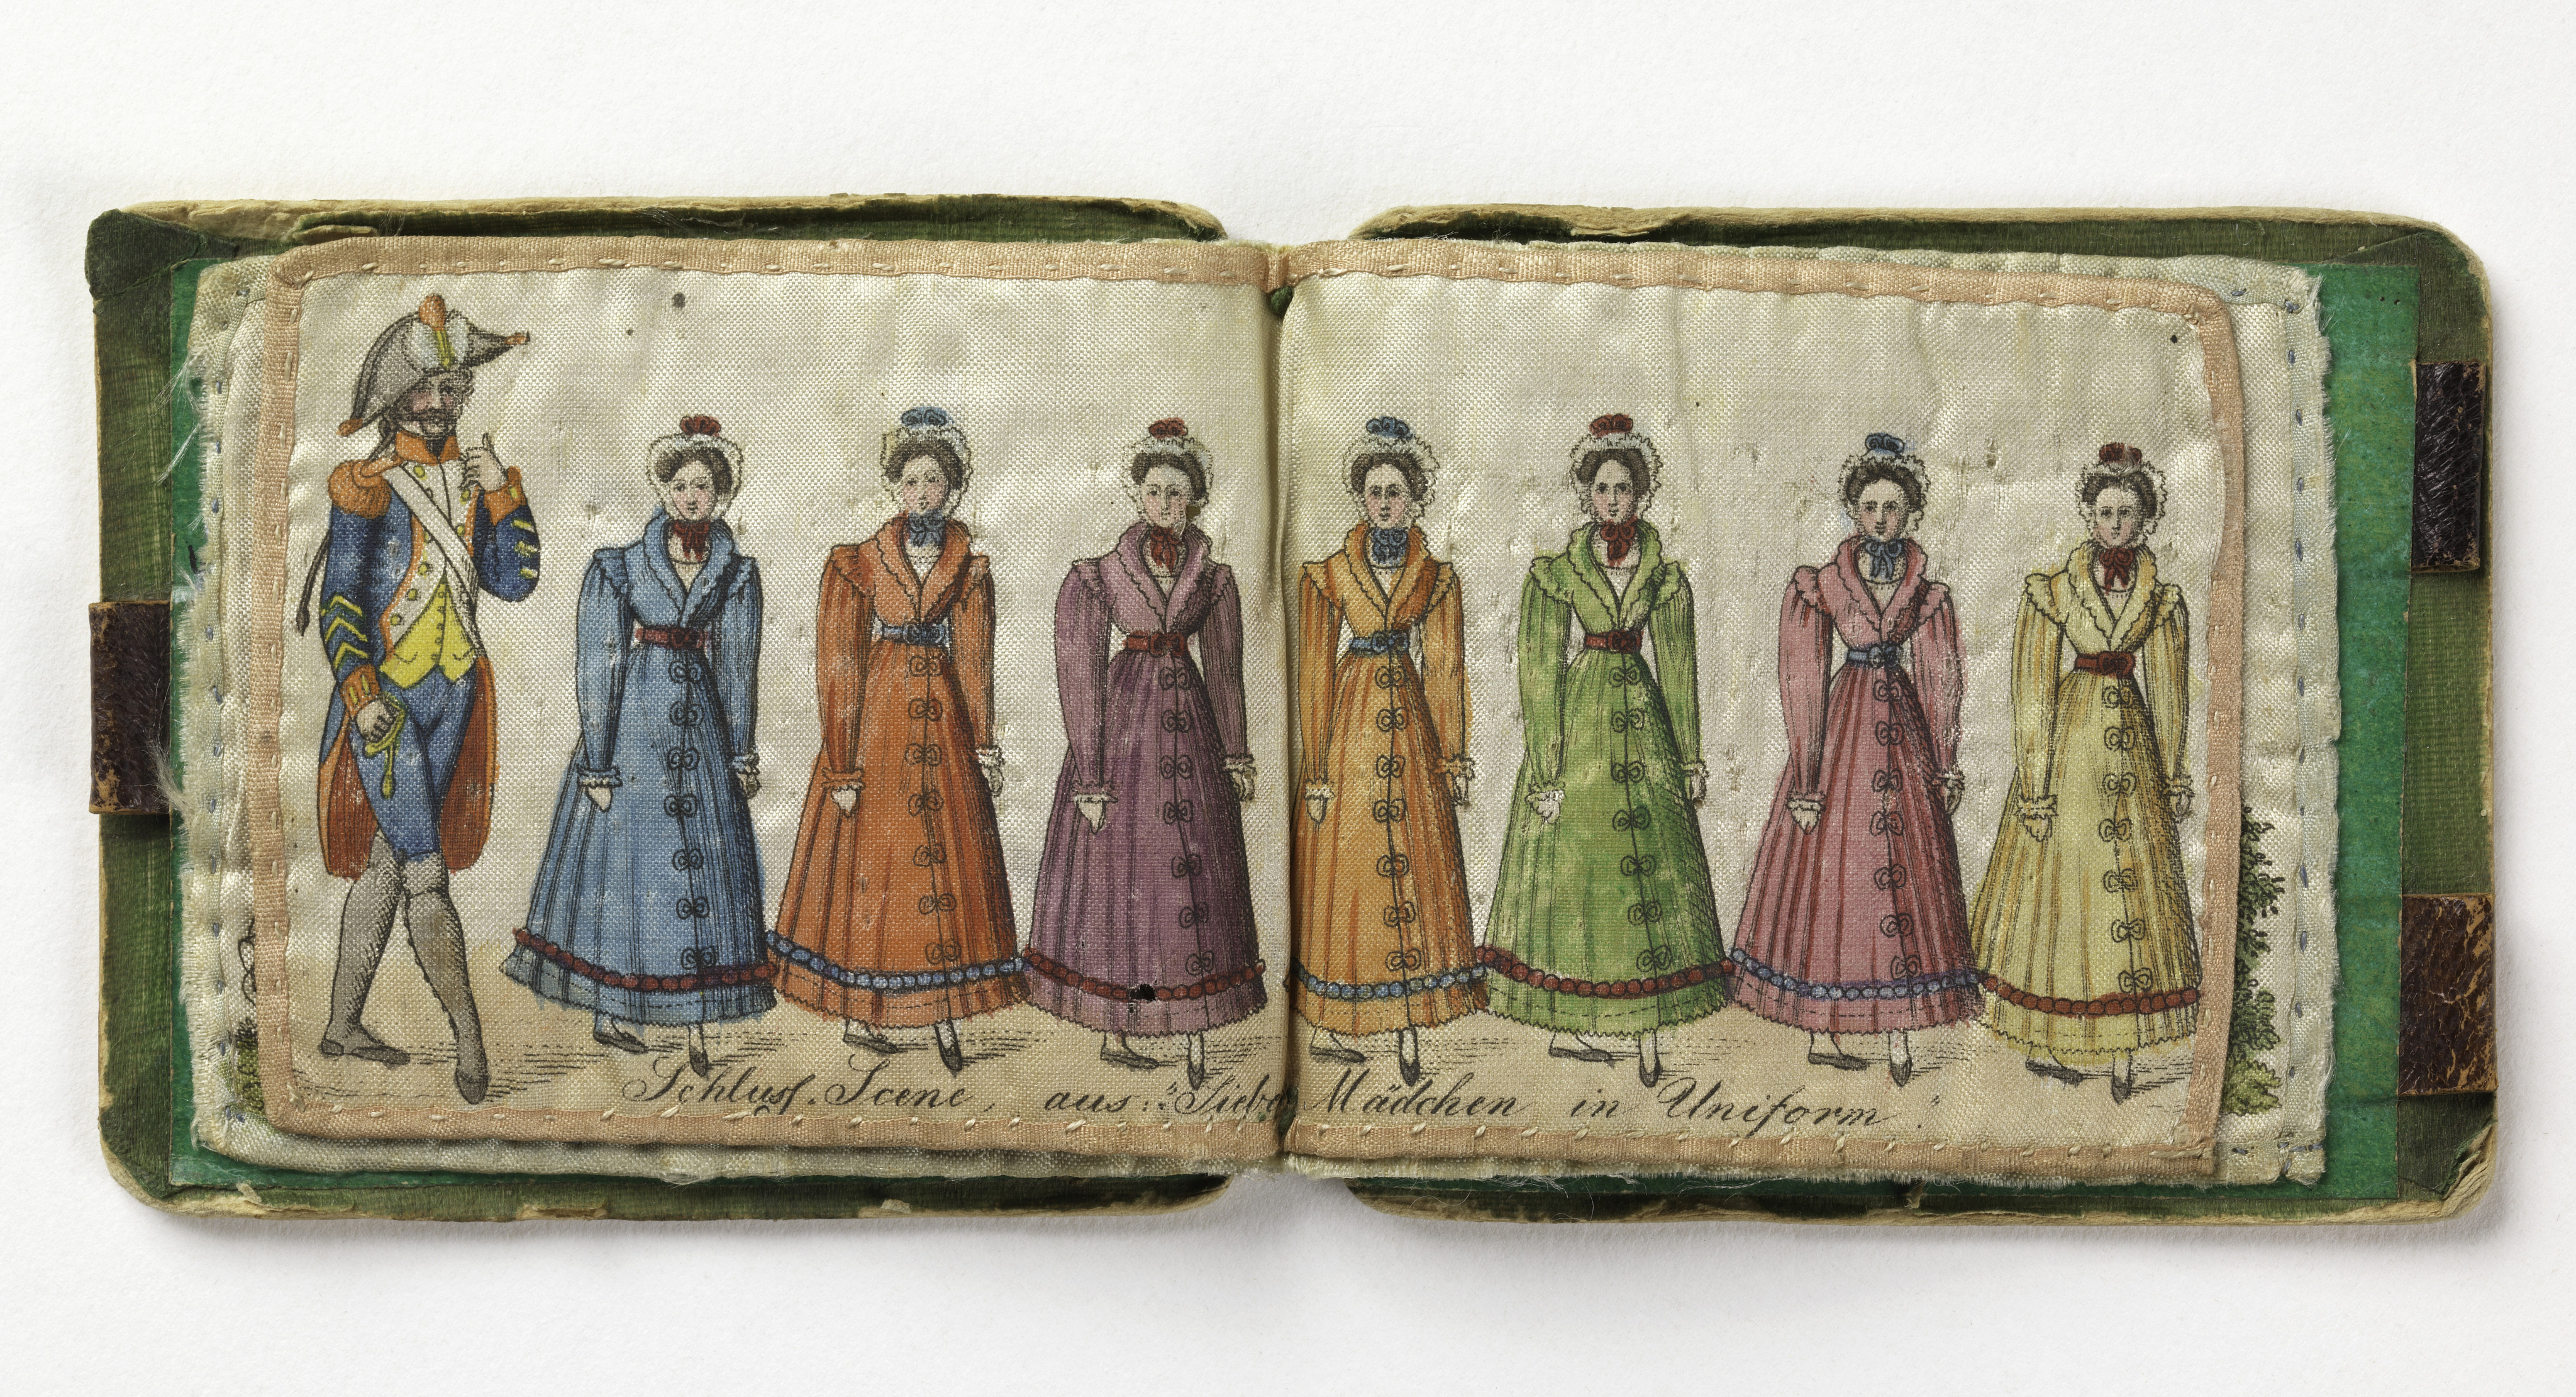 Schluſs-Scene, aus: "Siebe Mädchen in Uniform".